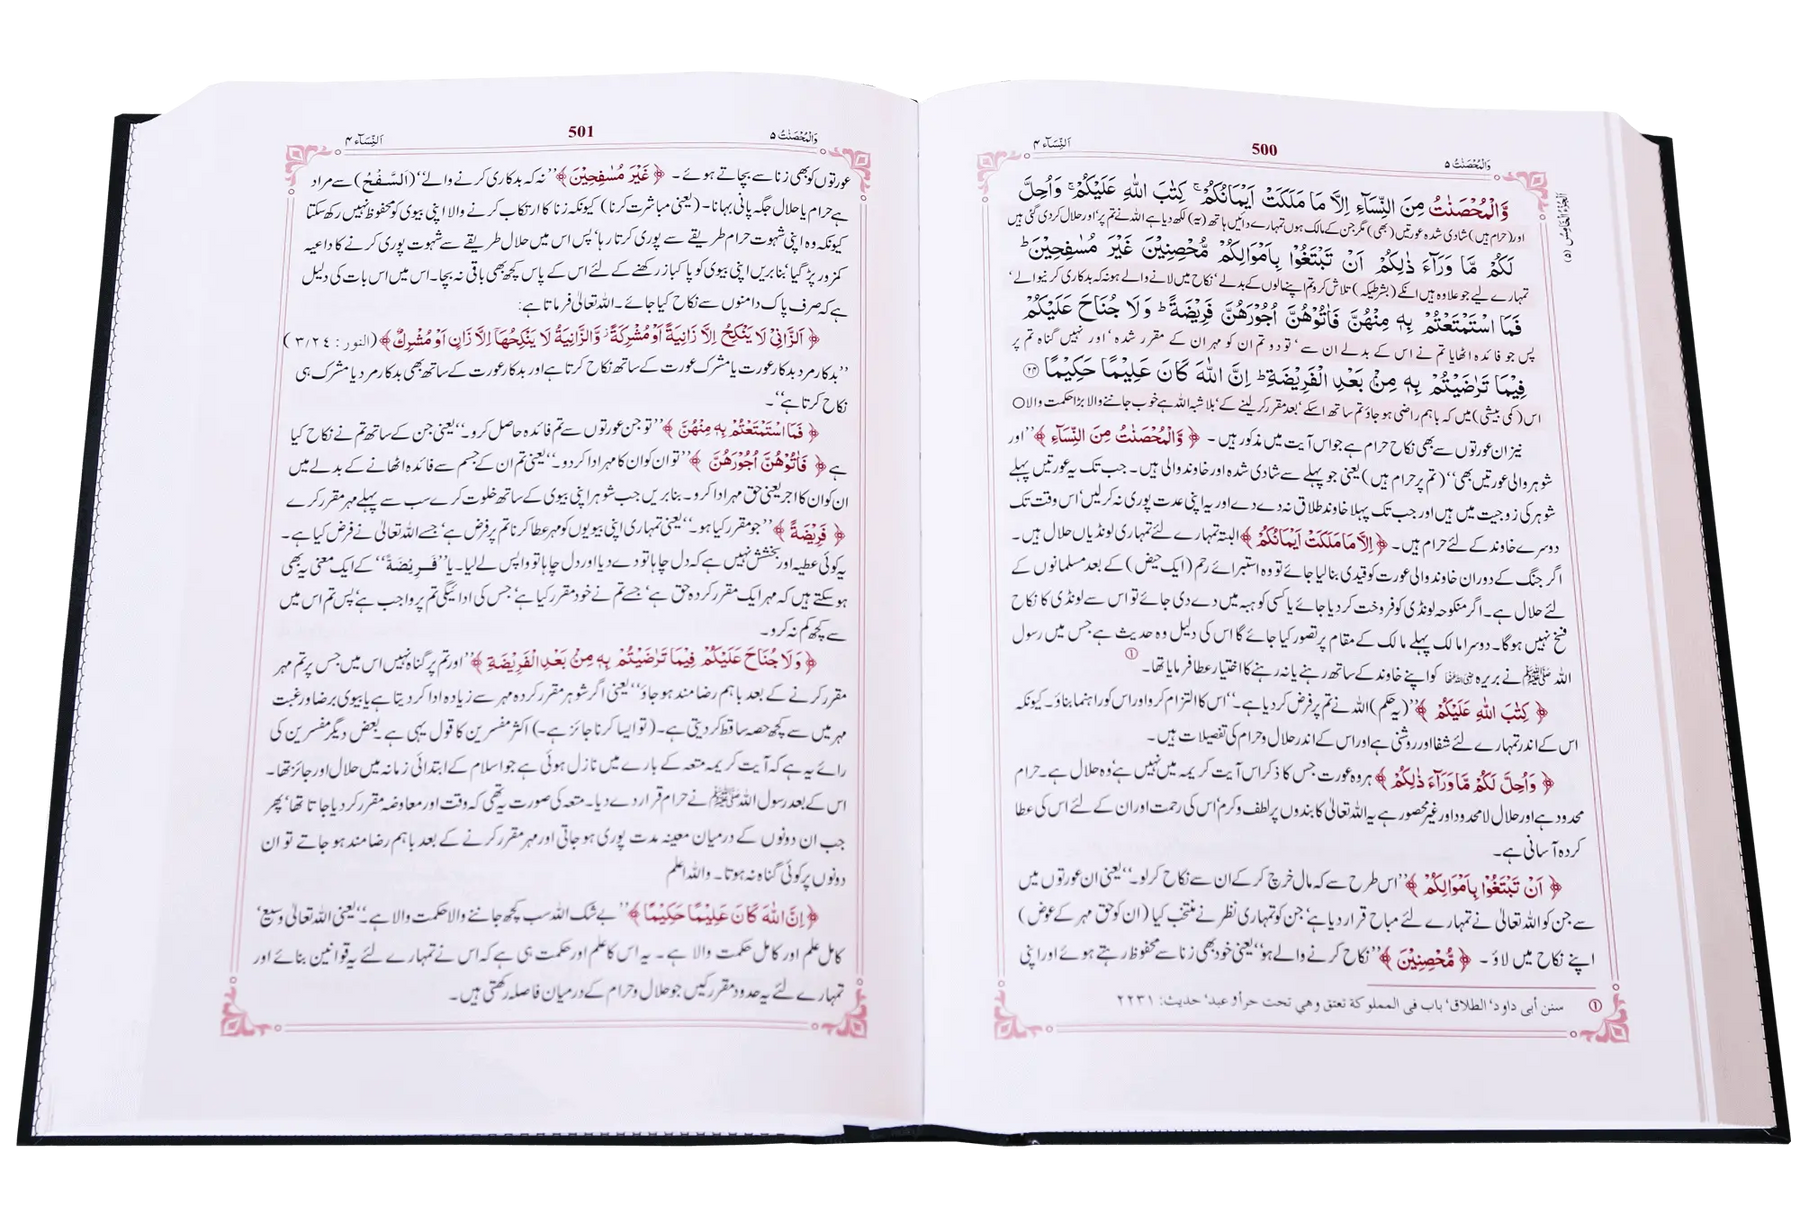 اَلنِّسَآء ۴
500
وَالْمُحْصَنٰتُ ۵
اَلْجُزْءُ الْخَامِسُ (۵)
وَّالْمُحْصَنٰتُ مِنَ النِّسَآءِ اِلَّا مَا مَلَكَتْ اَيْمَانُكُمْ ۚ كِتٰبَ اللّٰهِ عَلَيْكُمْ ۚ وَاُحِلَّ
اور (حرام ہیں) شادی شدہ عورتیں (بھی) مگر جن کے مالک ہوں تمہارے دائیں ہاتھ (یہ) لکھ دیا ہے اللہ نے تم پر' اور حلال کر دی گئی ہیں
لَكُمْ مَّا وَرَآءَ ذٰلِكُمْ اَنْ تَبْتَغُوْا بِاَمْوَالِكُمْ مُّحْصِنِيْنَ غَيْرَ مُسٰفِحِيْنَ ؕ
تمہارے لیے جو علاوہ ہیں انکے (بشرطیکہ) تلاش کرو تم اپنے مالوں کے بدلے' نکاح میں لانے والے ہو نہ کہ بدکاری کرنیوالے'
فَمَا اسْتَمْتَعْتُمْ بِهٖ مِنْهُنَّ فَاٰتُوْهُنَّ اُجُوْرَهُنَّ فَرِيْضَةً ؕ وَلَا جُنَاحَ عَلَيْكُمْ
پس جو فائدہ اٹھایا تم نے اس کے بدلے ان سے' تو دو تم ان کو مہر ان کے مقرر شدہ' اور نہیں گناہ تم پر
فِيْمَا تَرٰضَيْتُمْ بِهٖ مِنْۢ بَعْدِ الْفَرِيْضَةِ ؕ اِنَّ اللّٰهَ كَانَ عَلِيْمًا حَكِيْمًا ۝۲۴
اس (کمی بیشی) میں کہ باہم راضی ہو جاؤ تم ساتھ اسکے' بعد مقرر کر لینے کے' بلاشبہ اللہ ہے خوب جاننے والا بڑا حکمت والا ○
نیز ان عورتوں سے بھی نکاح حرام ہے جو اس آیت میں مذکور ہیں۔ ﴿ وَّالْمُحْصَنٰتُ مِنَ النِّسَآءِ ﴾ ’’اور
شوہر والی عورتیں بھی‘‘ (تم پر حرام ہیں) یعنی جو پہلے سے شادی شدہ اور خاوند والی ہیں۔ جب تک یہ عورتیں پہلے
شوہر کی زوجیت میں ہیں اور جب تک پہلا خاوند طلاق نہ دے دے اور یہ اپنی عدت پوری نہ کر لیں' اس وقت تک
دوسرے خاوند کے لئے حرام ہیں۔ ﴿ اِلَّا مَا مَلَكَتْ اَيْمَانُكُمْ ﴾ البتہ تمہارے لئے تمہاری لونڈیاں حلال ہیں۔
اگر جنگ کے دوران خاوند والی عورت کو قیدی بنا لیا جائے تو وہ استبرائے رحم (ایک حیض) کے بعد مسلمانوں کے
لئے حلال ہے۔ اگر منکوحہ لونڈی کو فروخت کر دیا جائے یا کسی کو ہبہ میں دے دی جائے تو اس سے لونڈی کا نکاح
فسخ نہیں ہو گا۔ دوسرا مالک پہلے مالک کے مقام پر تصور کیا جائے گا اس کی دلیل وہ حدیث ہے جس میں رسول
اللہ ﷺ نے بریرہ رضی اللہ عنہا کو اپنے خاوند کے ساتھ رہنے یا نہ رہنے کا اختیار عطا فرمایا تھا۔ ①
﴿ كِتٰبَ اللّٰهِ عَلَيْكُمْ ﴾ ’’(یہ حکم) اللہ نے تم پر فرض کر دیا ہے۔‘‘ اس کا التزام کرو اور اس کو راہنما بناؤ۔ کیونکہ
اس کے اندر تمہارے لئے شفا اور روشنی ہے اور اس کے اندر حلال و حرام کی تفصیلات ہیں۔
﴿ وَاُحِلَّ لَكُمْ مَّا وَرَآءَ ذٰلِكُمْ ﴾ ہر وہ عورت جس کا ذکر اس آیت کریمہ میں نہیں ہے' وہ حلال ہے۔ حرام
محدود ہے اور حلال لامحدود اور غیر محصور ہے یہ اللہ تعالیٰ کا بندوں پر لطف و کرم' اس کی رحمت اور ان کے لئے اس کی عطا
کردہ آسانی ہے۔
﴿ اَنْ تَبْتَغُوْا بِاَمْوَالِكُمْ ﴾ ’’اس طرح سے کہ مال خرچ کر کے ان سے نکاح کر لو۔‘‘ یعنی ان عورتوں میں
سے جن کو اللہ تعالیٰ نے تمہارے لئے مباح قرار دیا ہے' جن کو تمہاری نظر نے منتخب کیا (ان کو حق مہر کے عوض)
اپنے نکاح میں لاؤ۔ ﴿ مُّحْصِنِيْنَ ﴾ ’’نکاح کرنے والے ہو‘‘ یعنی خود بھی زنا سے محفوظ رہتے ہوئے اور اپنی
① سنن أبی داود' الطلاق' باب فی المملوکة تعتق وھي تحت حر أو عبد' حدیث: ۲۲۳۱
اَلنِّسَآء ۴
501
وَالْمُحْصَنٰتُ ۵
عورتوں کو بھی زنا سے بچاتے ہوئے۔ ﴿ غَيْرَ مُسٰفِحِيْنَ ﴾ ’’نہ کہ بدکاری کرنے والے‘‘ (اَلسَّفْحُ) سے مراد
ہے حرام یا حلال جگہ پانی بہانا۔ (یعنی مباشرت کرنا) کیونکہ زنا کا ارتکاب کرنے والا اپنی بیوی کو محفوظ نہیں رکھ سکتا
کیونکہ وہ اپنی شہوت حرام طریقے سے پوری کرتا رہا' پس اس میں حلال طریقے سے شہوت پوری کرنے کا داعیہ
کمزور پڑ گیا' بنابریں اپنی بیوی کو پاکباز رکھنے کے لئے اس کے پاس کچھ بھی باقی نہ بچا۔ اس میں اس بات کی دلیل
ہے کہ صرف پاک دامنوں سے نکاح کیا جائے۔ اللہ تعالیٰ فرماتا ہے:
﴿ اَلزَّانِيْ لَا يَنْكِحُ اِلَّا زَانِيَةً اَوْ مُشْرِكَةً ۫ وَّالزَّانِيَةُ لَا يَنْكِحُهَاۤ اِلَّا زَانٍ اَوْ مُشْرِكٌ ﴾ (النور: ۳/۲۴)
’’بدکار مرد بدکار عورت یا مشرک عورت کے ساتھ نکاح کرتا ہے اور بدکار عورت کے ساتھ بھی بدکار مرد یا مشرک ہی
نکاح کرتا ہے‘‘۔
﴿ فَمَا اسْتَمْتَعْتُمْ بِهٖ مِنْهُنَّ ﴾ ’’تو جن عورتوں سے تم فائدہ حاصل کرو۔‘‘ یعنی جن کے ساتھ تم نے نکاح کیا
ہے ﴿ فَاٰتُوْهُنَّ اُجُوْرَهُنَّ ﴾ ’’تو ان کو ان کا مہر ادا کر دو۔‘‘ یعنی تم ان کے جسم سے فائدہ اٹھانے کے بدلے میں
ان کو ان کا اجر یعنی حق مہر ادا کرو۔ بنابریں جب شوہر اپنی بیوی کے ساتھ خلوت کرے سب سے پہلے مہر مقرر کرے
﴿ فَرِيْضَةً ﴾ ’’جو مقرر کیا ہو۔‘‘ یعنی تمہاری اپنی بیویوں کو مہر عطا کرنا تم پر فرض ہے' جسے اللہ تعالیٰ نے فرض کیا ہے۔
یہ کوئی عطیہ اور بخشش نہیں ہے کہ دل چاہا تو دے دیا اور دل چاہا تو واپس لے لیا۔ یا ’’فَرِيضَةً‘‘ کے ایک معنی یہ بھی
ہو سکتے ہیں کہ مہر ایک مقرر کردہ حق ہے' جسے تم نے خود مقرر کیا ہے' جس کی ادائیگی تم پر واجب ہے' پس تم اس میں
سے کچھ کم نہ کرو۔
﴿ وَلَا جُنَاحَ عَلَيْكُمْ فِيْمَا تَرٰضَيْتُمْ بِهٖ مِنْۢ بَعْدِ الْفَرِيْضَةِ ﴾ ’’اور تم پر گناہ نہیں اس میں جس پر تم مہر
مقرر کرنے کے بعد باہم رضامند ہو جاؤ‘‘ یعنی اگر شوہر مقرر کردہ مہر سے زیادہ ادا کر دیتا ہے یا بیوی برضا و رغبت
مہر میں سے کچھ حصہ ساقط کر دیتی ہے۔ (تو ایسا کرنا جائز ہے۔) اکثر مفسرین کا قول یہی ہے بعض دیگر مفسرین کی
رائے یہ ہے کہ آیت کریمہ متعہ کے بارے میں نازل ہوئی ہے جو اسلام کے ابتدائی زمانہ میں حلال اور جائز تھا۔
اس کے بعد رسول اللہ ﷺ نے حرام قرار دے دیا۔ متعہ کی صورت یہ تھی کہ وقت اور معاوضہ مقرر کر دیا جاتا تھا' پھر
جب ان دونوں کے درمیان معینہ مدت پوری ہو جاتی اور مہر مقرر کرنے کے بعد باہم رضامند ہو جاتے تو ان
دونوں پر کوئی گناہ نہ ہوتا۔ واللہ اعلم
﴿ اِنَّ اللّٰهَ كَانَ عَلِيْمًا حَكِيْمًا ﴾ ’’بے شک اللہ سب کچھ جاننے والا حکمت والا ہے۔‘‘ یعنی اللہ تعالیٰ وسیع'
کامل علم اور کامل حکمت والا ہے۔ یہ اس کا علم اور حکمت ہی ہے کہ اس نے تمہارے لئے یہ قوانین بنائے اور
تمہارے لئے یہ حدود مقرر کیں جو حلال و حرام کے درمیان فاصلہ رکھتی ہیں۔